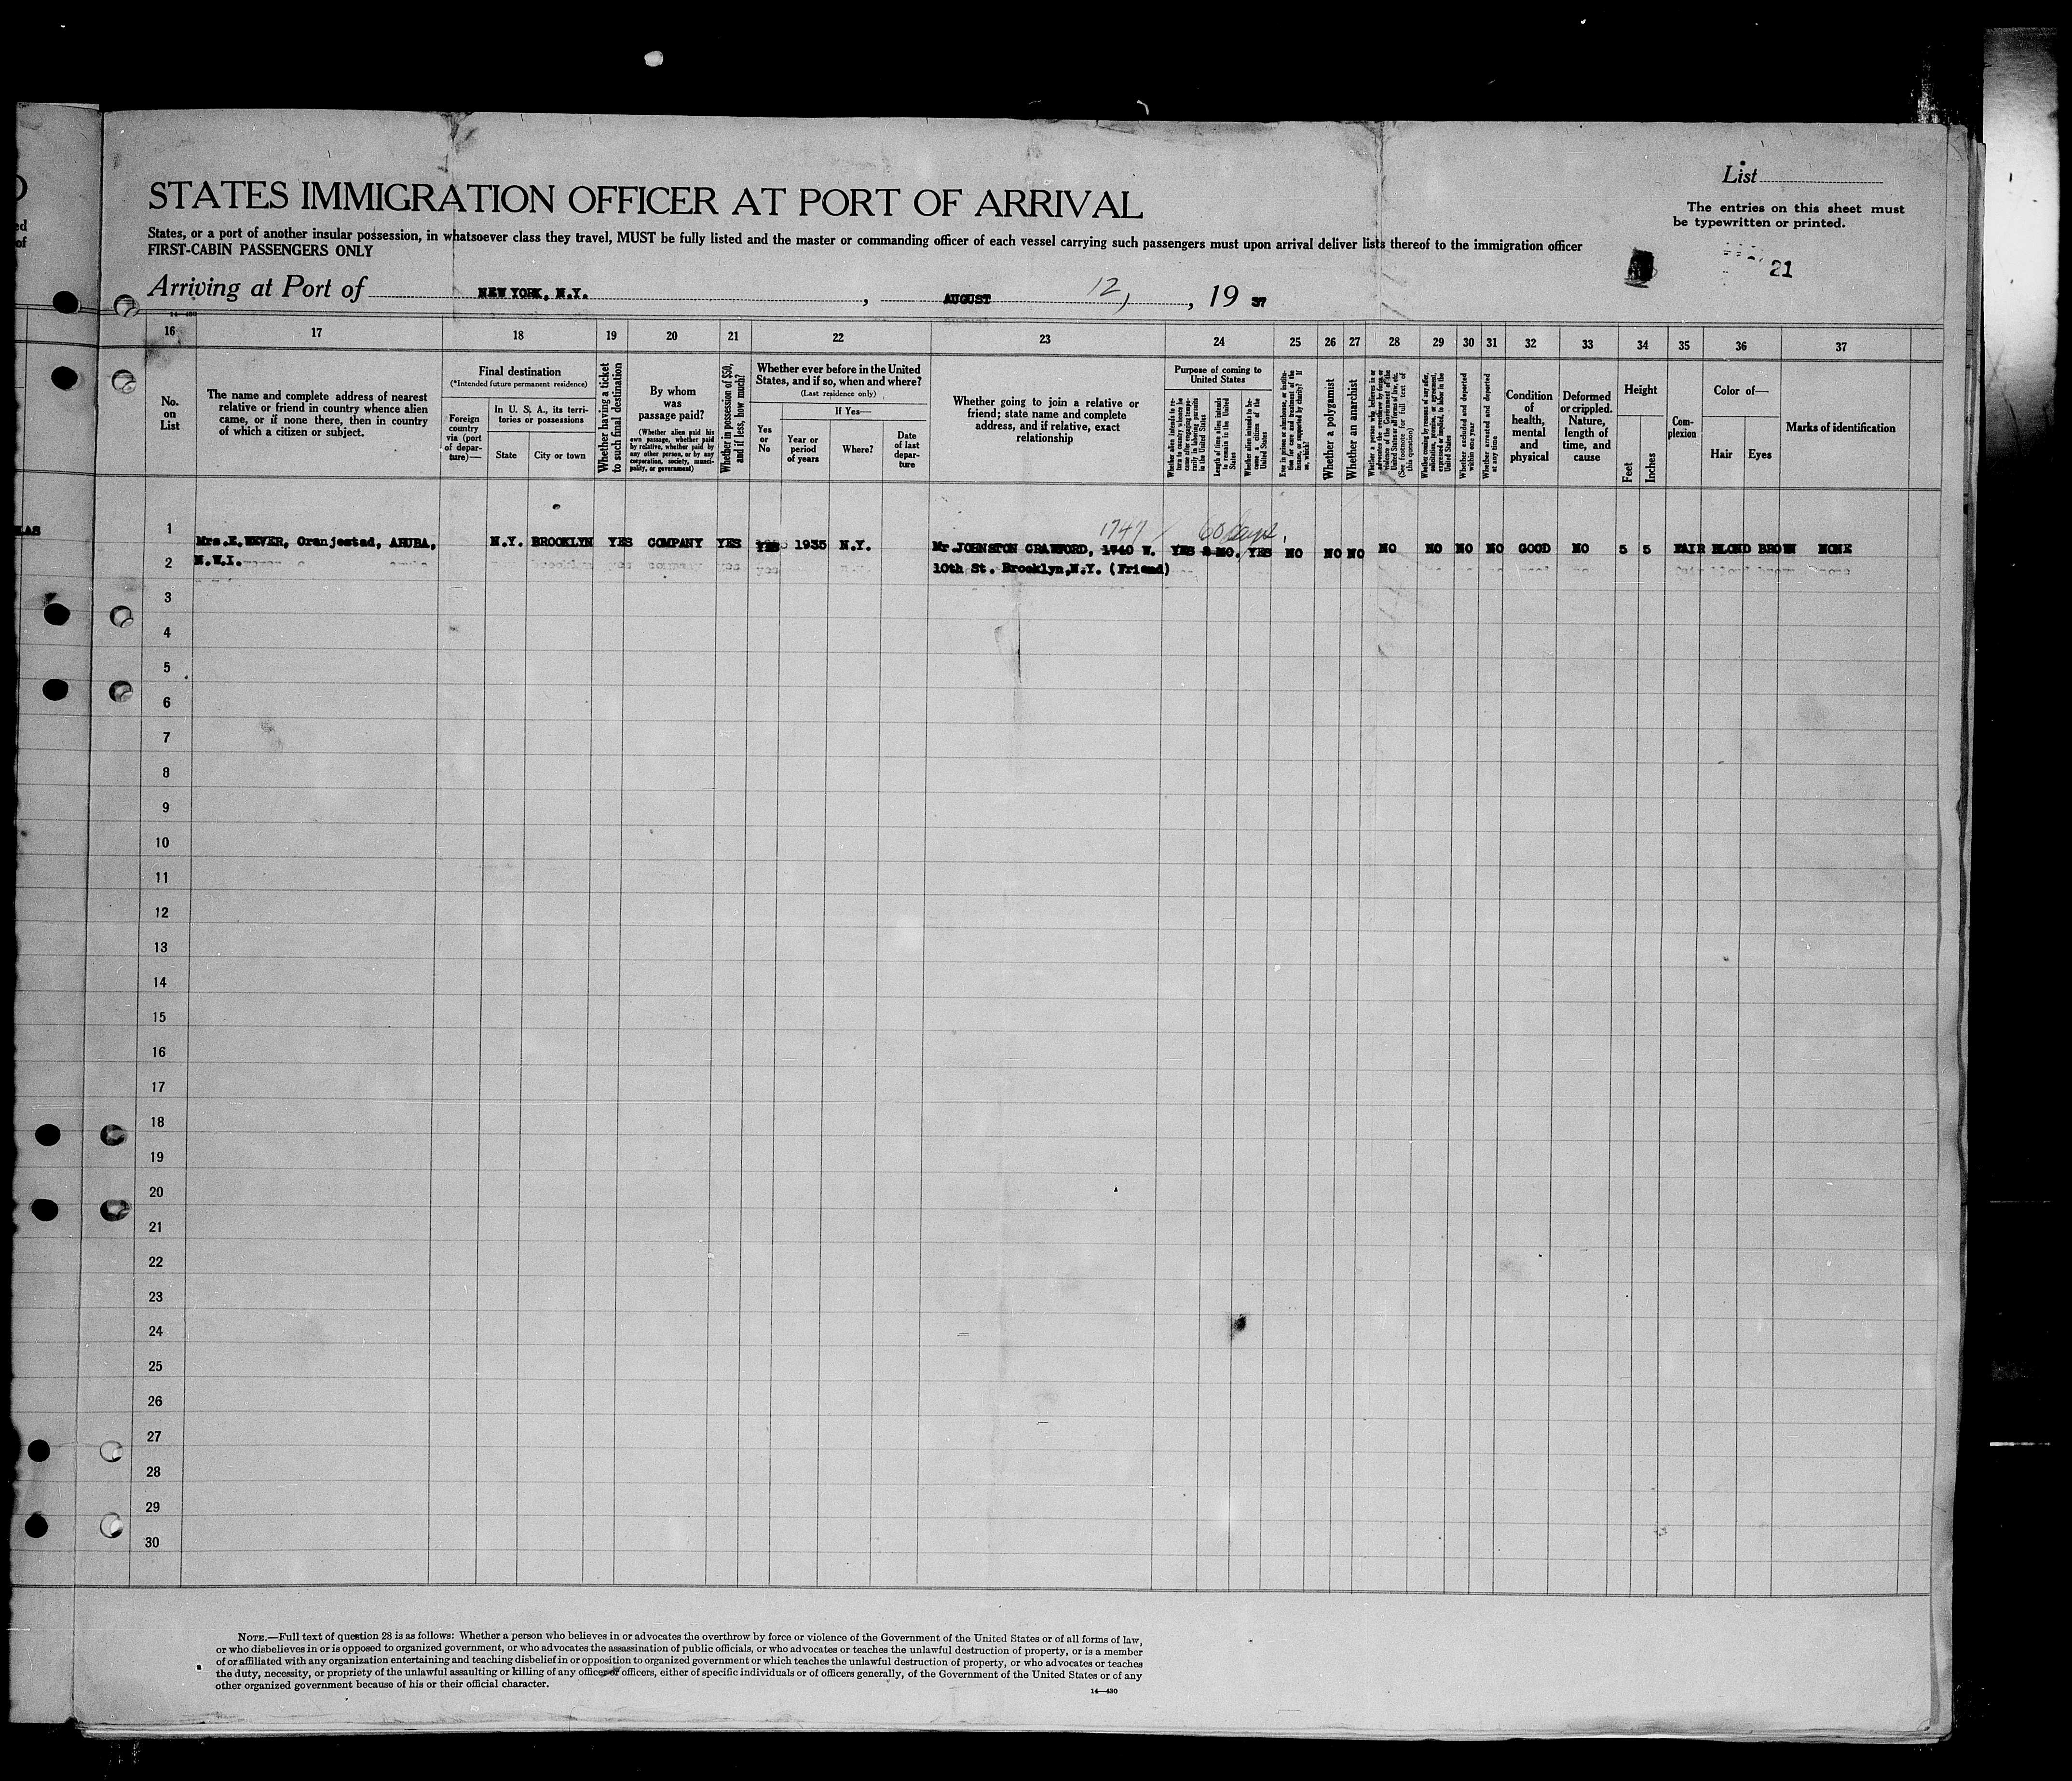 ed
of
STATES IMMIGRATION OFFICER AT PORT OF ARRIVAL
List
The entries on this sheet must
be typewritten or printed.
States, or a port of another insular possession, in whatsoever class they travel, MUST be fully listed and the master or commanding officer of each vessel carrying such passengers must upon arrival deliver lists thereof to the immigration officer
FIRST-CABIN PASSENGERS ONLY
21
Arriving at Port of NEW YORK, N.Y. , AUGUST 12, , 19 37
14—430
16 17 18 19 20 21 22 23 24 25 26 27 28 29 30 31 32 33 34 35 36 37
No.
on
List
The name and complete address of nearest
relative or friend in country whence alien
came, or if none there, then in country
of which a citizen or subject.
Final destination
(*Intended future permanent residence)
Foreign
country
via (port
of depar-
ture)—
In U. S. A., its terri-
tories or possessions
State
City or town
Whether having a ticket
to such final destination
By whom
was
passage paid?
(Whether alien paid his
own passage, whether paid
by relative, whether paid by
any other person, or by any
corporation, society, munici-
pality, or government)
Whether in possession of $50,
and if less, how much?
Whether ever before in the United
States, and if so, when and where?
(Last residence only)
Yes
or
No
If Yes—
Year or
period
of years
Where?
Date
of last
depar-
ture
Whether going to join a relative or
friend; state name and complete
address, and if relative, exact
relationship
Purpose of coming to
United States
Whether alien intends to re-
turn to country whence he
came after engaging tempo-
rarily in laboring pursuits
in the United States
Length of time alien intends
to remain in the United
States
Whether alien intends to be-
come a citizen of the
United States
Ever in prison or almshouse, or institu-
tion for care and treatment of the
insane, or supported by charity? If
so, which?
Whether a polygamist
Whether an anarchist
Whether a person who believes in or
advocates the overthrow by force or
violence of the Government of the
United States or all forms of law, etc.
(See footnote for full text of
this question)
Whether coming by reason of any offer,
solicitation, promise, or agreement,
expressed or implied, to labor in the
United States
Whether excluded and deported
within one year
Whether arrested and deported
at any time
Condition
of
health,
mental
and
physical
Deformed
or crippled.
Nature,
length of
time, and
cause
Height
Feet
Inches
Com-
plexion
Color of—
Hair
Eyes
Marks of identification
1747 60 days.
1 Mrs.E.WEVER, Oranjestad, ARUBA, N.Y. BROOKLYN YES COMPANY YES YES 1935 N.Y. Mr.JOHNSTON CRAWFORD, 1740 W. YES 2 MO. YES NO NO NO NO NO NO NO GOOD NO 5 5 FAIR BLOND BROWN NONE
N.W.I.
10th St. Brooklyn,N.Y. (Friend)
2
3
4
5
6
7
8
9
10
11
12
13
14
15
16
17
18
19
20
21
22
23
24
25
26
27
28
29
30
NOTE.—Full text of question 28 is as follows: Whether a person who believes in or advocates the overthrow by force or violence of the Government of the United States or of all forms of law,
or who disbelieves in or is opposed to organized government, or who advocates the assassination of public officials, or who advocates or teaches the unlawful destruction of property, or is a member
of or affiliated with any organization entertaining and teaching disbelief in or opposition to organized government or which teaches the unlawful destruction of property, or who advocates or teaches
the duty, necessity, or propriety of the unlawful assaulting or killing of any officer or officers, either of specific individuals or of officers generally, of the Government of the United States or of any
other organized government because of his or their official character.
14—430